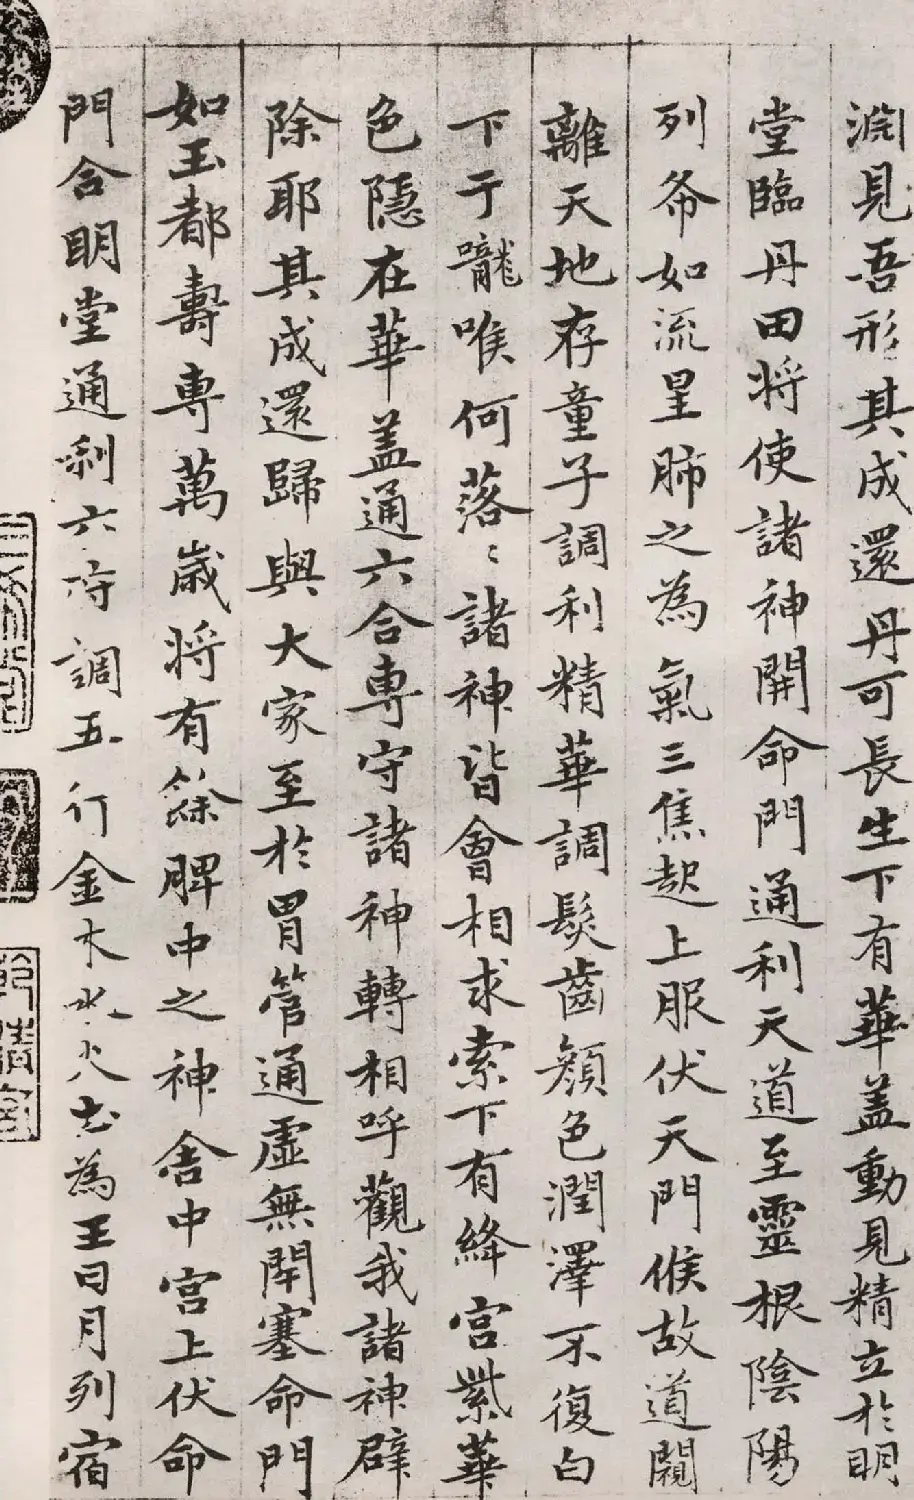 淵見吾形其成還丹可長生下有華盖動見精立於明
堂臨丹田将使諸神開命門通利天道至靈根陰陽
列布如流星肺之為氣三焦起上服伏天門候故道闚
離天地存童子調利精華調髮齒顔色潤澤不復白
下于嚨喉何落〻諸神皆會相求索下有絳宫紫華
色隱在華盖通六合専守諸神轉相呼觀我諸神辟
除耶其成還歸與大家至於胃管通虚無閉塞命門
如玉都壽専萬歲将有餘脾中之神舎中宫上伏命
門合明堂通利六府調五行金木水火土為王日月列宿
乾清宫